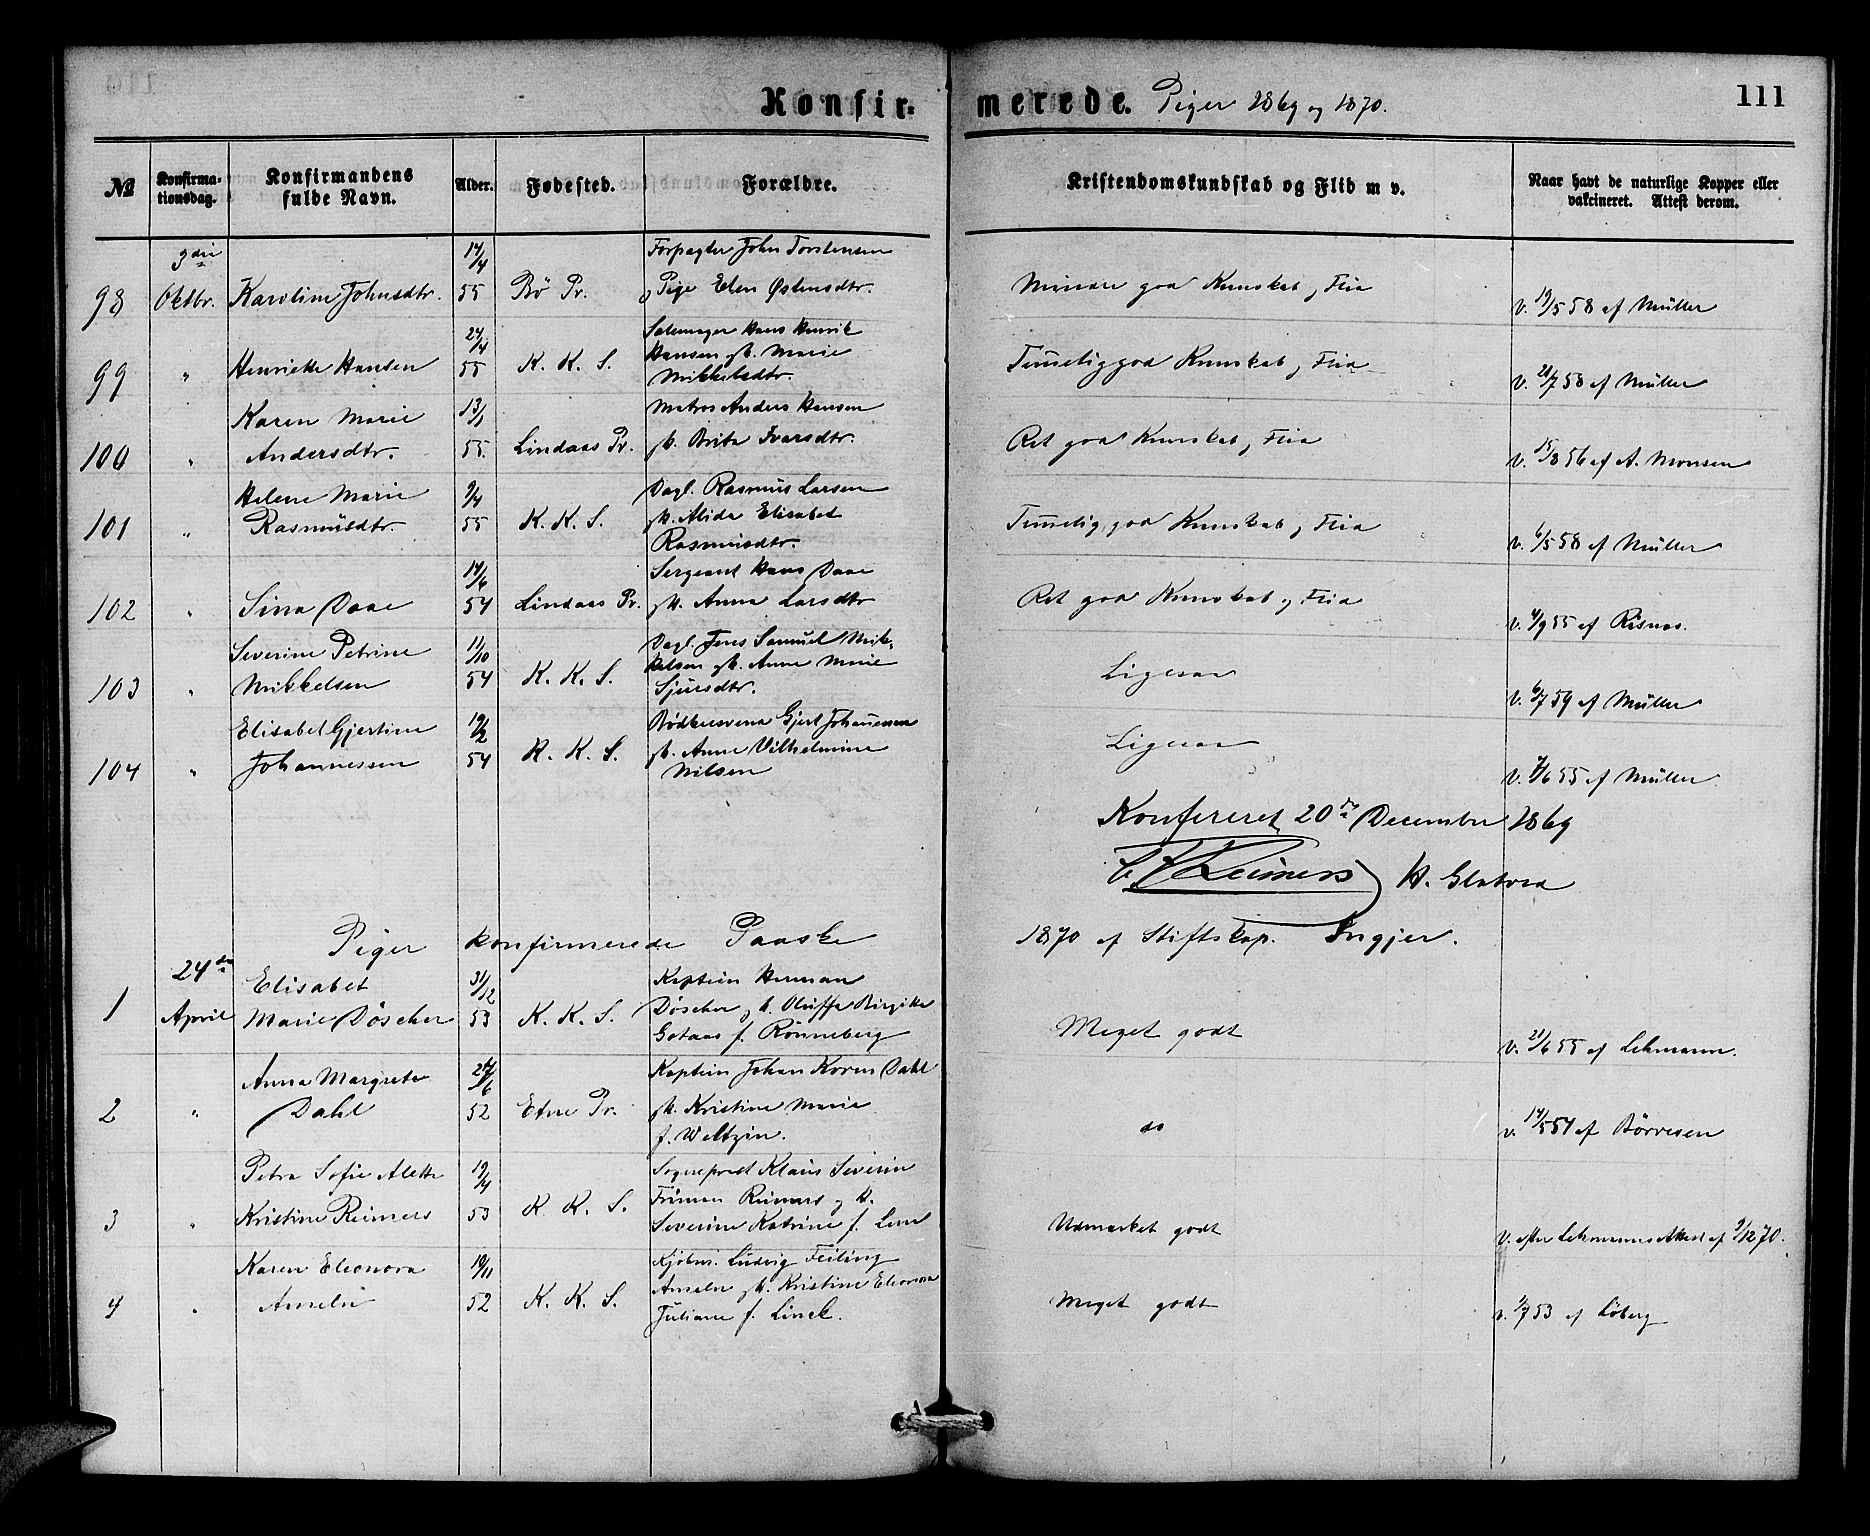 Konfirmerede. Piger 1869 og 1870.
111
№ Konfirmationsdag. Konfirmandens fulde Navn. Alder. Fødested. Forældre. Kristendomskundskab og Flid m v. Naar havt de naturlige Kopper eller vakcineret. Attest derom.
9die 14/4 Forpagter John Torstensen
98 Oktbr. Karoline Johnsdtr. 55 Bö Pr. og Pige Elen Østensdtr. Mindre god Kunskab og Flid v. 19/5 58 af Müller
24/4 Salmager Hans Henrik
99 " Henriette Hansen 55 K. K. S. Hansen og h. Marie Temmelig god Kunskab og Flid v. 21/7 58 af Müller
Mikkelsdtr.
Karen Marie 13/1 Matros Anders Hansen
100 " Andersdtr. 55. Lindaas Pr. og h. Brita Ivarsdtr. Ret god Kunskab og Flid v. 15/8 56 af A. Monsen
Helene Marie 9/4 Dagl. Rasmus Larsen
101 " Rasmusdtr. 55 K. K. S. og h. Alida Elisabet Temmelig god Kunskab og Flid v. 6/5 58 af Müller
Rasmusdtr.
14/6 Sergeant Hans Daae
102 " Sina Daae 54 Lindaas Pr. og h. Anna Larsdtr Ret god Kunskab og Flid v. 4/9 55 af Risnes.
Severine Petrine 11/10 Dagl. Jens Samuel Mik-
103 " Mikkelsen 54 K. K. S. kelsen og h. Anne Marie Ligesaa v. 6/7 59 af Müller
Sjursdtr.
Elisabet Gjertine 19/2 Bødkersvend Gjert Johannessen
104 " Johannessen 54 K. K. S. og h. Anne Vilhelmine Ligesaa v. 7/6 55 af Müller.
Nilsen
Konfereret 20de December 1869
Reimers H. Glatved
Piger konfirmerede Paaske 1870 af Stiftskap. Ingier.
24de Elisabet 31/12 Kaptein Herman
1 April Marie Döscher 53 K. K. S. Döscher og h. Oluffa Birgitte Meget godt v. 21/6 55 af Lehmann.
Gotaas f. Rönneberg
Anna Margrete 24/6 Kaptein Johan Koren Dahl
2 " Dahl 52 Etne Pr. og h. Kristine Marie do v. 14/5 54 af Börresen
f. Weltzin.
Petra Sofie Alette 19/4 Sogneprest Klaus Severin
3 " Kristine Reimers 53 K. K. S. Friman Reimers og h. Udmærket godt v. efter Lehmanns Attest af 9/12 70.
Severine Katrine f. Lem
Karen Eleonora 19/11 Kjøbm. Ludvig Feiling
4 " Ameln 52 K. K. S. Ameln og h. Kristine Eleonora Meget godt v. 1/7 53 af Löberg
Juliane f. Linck.